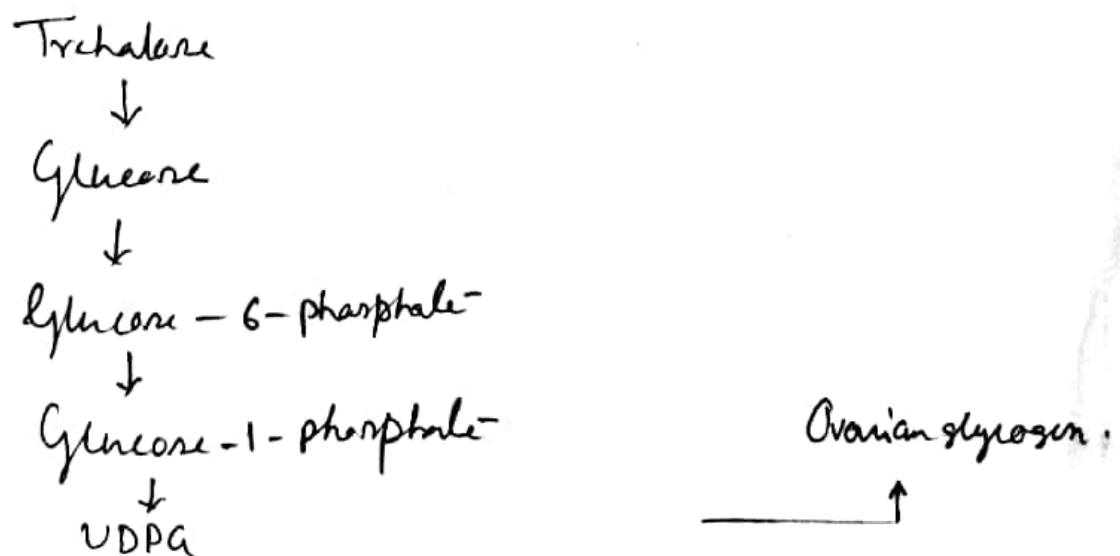 Trehalose
↓
Glucose
↓
Glucose - 6 - phosphate
↓
Glucose - 1 - phosphate
Ovarian glycogen.
↓
UDPG